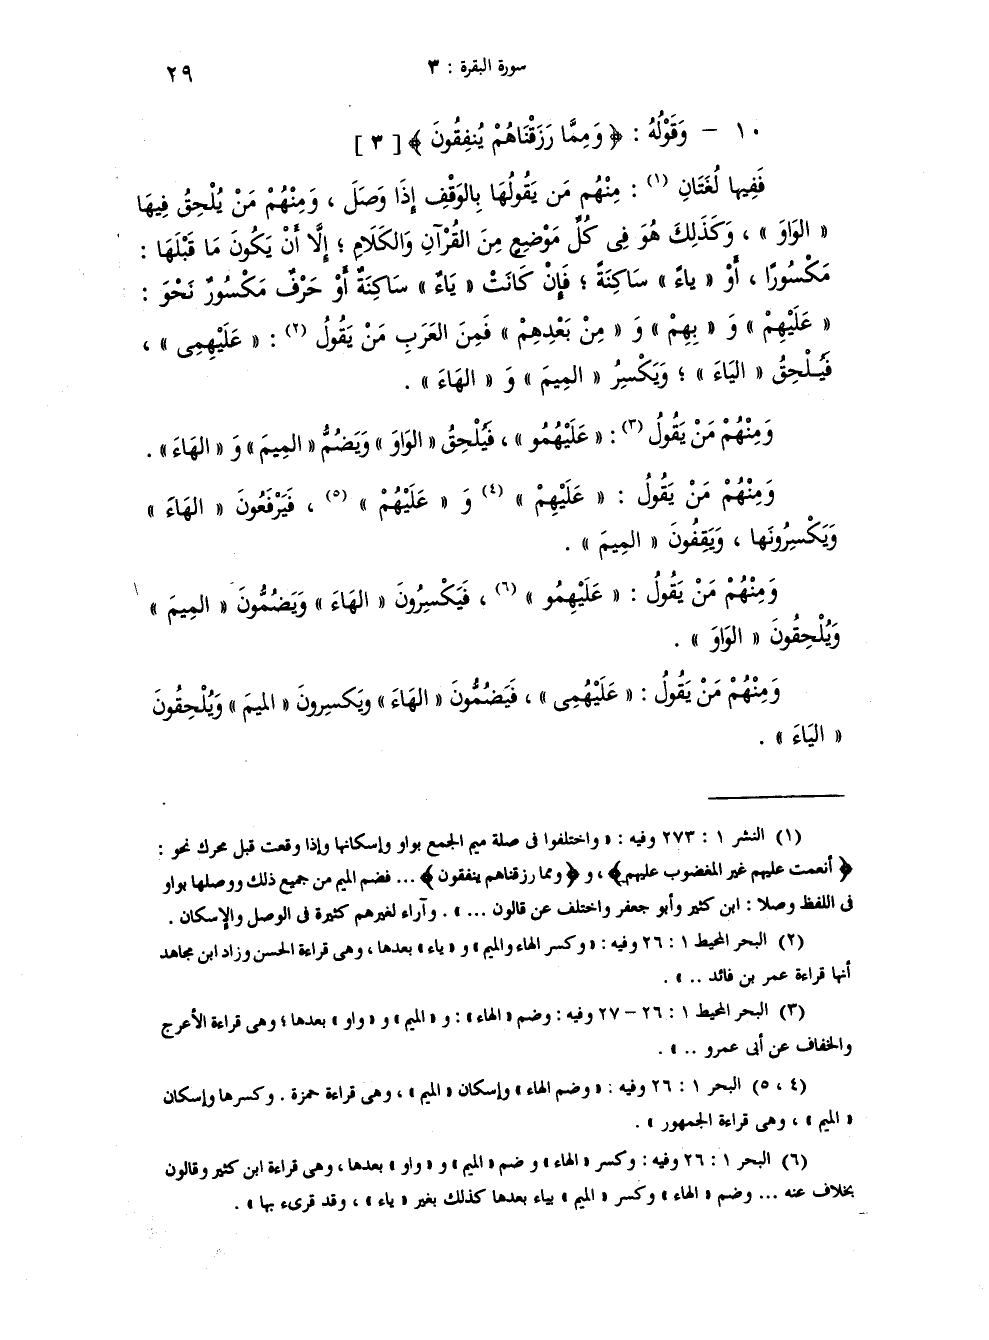 سورة البقرة : ٣ ٢٩
١٠ – وَقَوْلُهُ : ﴿ وَمِمَّا رَزَقْنَاهُمْ يُنفِقُونَ ﴾ [ ٣ ]
فَفِيها لُغَتَانِ (١) : مِنْهُم مَن يَقُولُهَا بِالوَقْفِ إِذَا وَصَلَ ، وَمِنْهُمْ مَنْ يُلْحِقُ فِيهَا
« الوَاوَ » ، وَكَذَلِكَ هُوَ فِى كُلِّ مَوْضِعٍ مِنَ القُرْآنِ وَالكَلَامِ ؛ إِلَّا أَنْ يَكُونَ مَا قَبْلَهَا :
مَكْسُورًا ، أَوْ « ياءً » سَاكِنَةً ؛ فَإِنْ كَانَتْ « يَاءٌ » سَاكِنَةٌ أَوْ حَرْفٌ مَكْسُورٌ نَحْوَ :
« عَلَيْهِمْ » وَ « بِهِمْ » وَ « مِنْ بَعْدِهِمْ » فَمِنَ العَرَبِ مَنْ يَقُولُ (٢) : « عَلَيْهِمِى » ،
فَيُلْحِقُ « اليَاءَ » ؛ وَيَكْسِرُ « المِيمَ » وَ « الهَاءَ » .
وَمِنْهُمْ مَنْ يَقُولُ (٣) : « عَلَيْهُمُو » ، فَيُلْحِقُ « الوَاوَ » وَيَضُمُّ « المِيمَ » وَ « الهَاءَ » .
وَمِنْهُمْ مَنْ يَقُولُ : « عَلَيْهِمْ » (٤) وَ « عَلَيْهُمْ » (٥) ، فَيَرْفَعُونَ « الهَاءَ »
وَيَكْسِرُونَها ، وَيَقِفُونَ « المِيمَ » .
وَمِنْهُمْ مَنْ يَقُولُ : « عَلَيْهِمُو » (٦) ، فَيَكْسِرُونَ « الهَاءَ » وَيَضُمُّونَ « المِيمَ »
وَيُلْحِقُونَ « الوَاوَ » .
وَمِنْهُمْ مَنْ يَقُولُ : « عَلَيْهُمِى » ، فَيَضُمُّونَ « الهَاءَ » وَيَكسِرونَ « الميمَ » وَيُلْحِقُونَ
« اليَاءَ » .
(١) النشر ١ : ٢٧٣ وفيه : « واختلفوا فى صلة ميم الجمع بواو وإسكانها وإذا وقعت قبل محرك نحو :
﴿ أنعمت عليهم غير المغضوب عليهم ﴾ ، و ﴿ ومما رزقناهم ينفقون ﴾ ... فضم الميم من جميع ذلك ووصلها بواو
فى اللفظ وصلا : ابن كثير وأبو جعفر واختلف عن قالون ... » . وآراء لغيرهم كثيرة فى الوصل والإسكان .
(٢) البحر المحيط ١ : ٢٦ وفيه : « وكسر الهاء والميم » و « ياء » بعدها ، وهى قراءة الحسن وزاد ابن مجاهد
أنها قراءة عمر بن فائد .. » .
(٣) البحر المحيط ١ : ٢٦ – ٢٧ وفيه : وضم « الهاء » : و « الميم » و « واو » بعدها ؛ وهى قراءة الأعرج
والخفاف عن أبى عمرو .. » .
(٤ ، ٥) البحر ١ : ٢٦ وفيه : « وضم الهاء » وإسكان « الميم » ، وهى قراءة حمزة . وكسرها وإسكان
« الميم » ، وهى قراءة الجمهور » .
(٦) البحر ١ : ٢٦ وفيه : وكسر « الهاء » و ضم « الميم » و « واو » بعدها ، وهى قراءة ابن كثير وقالون
بخلاف عنه ... وضم « الهاء » وكسر « الميم » بياء بعدها كذلك بغير « ياء » ، وقد قرىء بها » .